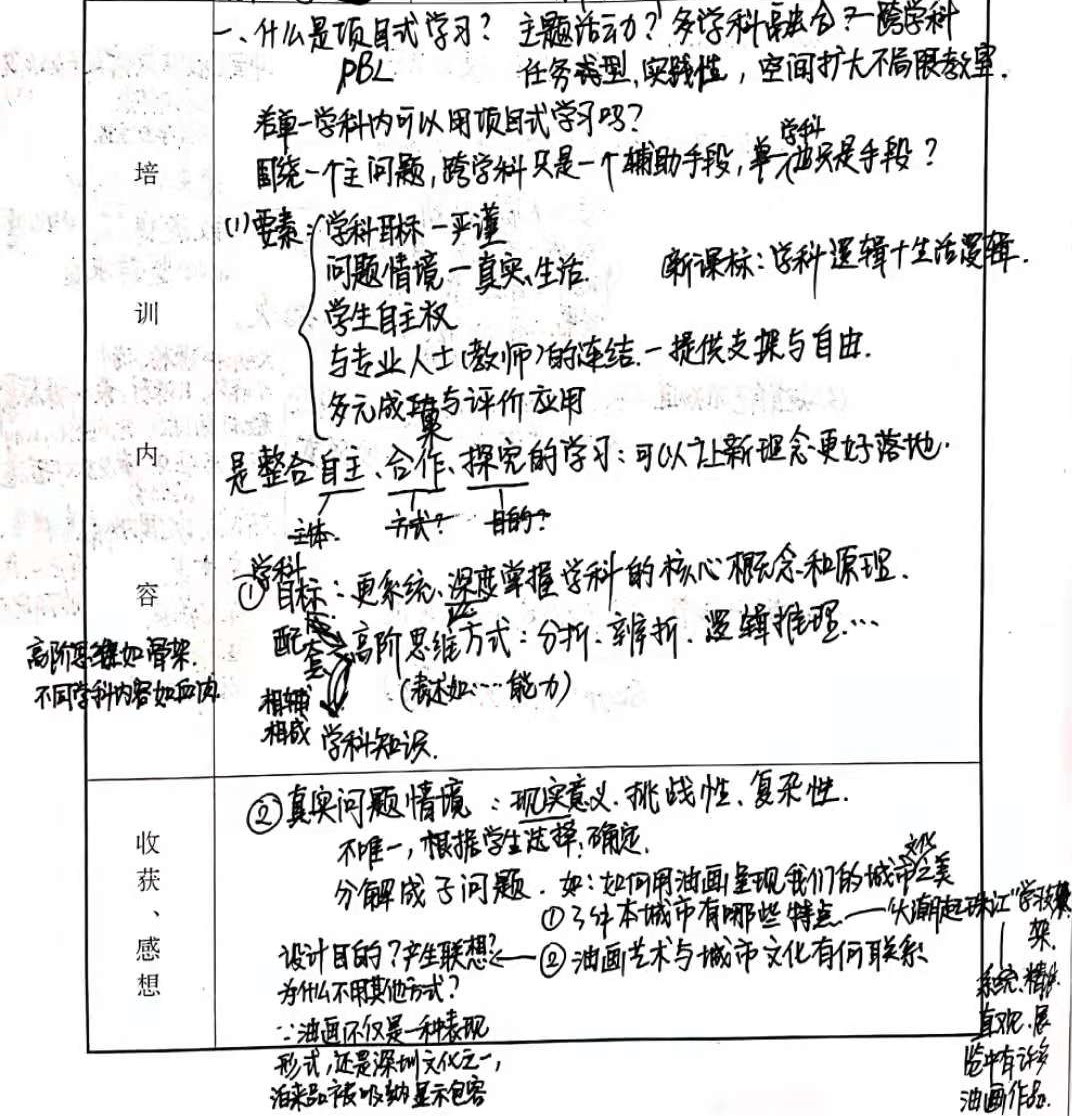 一、什么是项目式学习? 主题活动? 多学科融合? 一跨学科
PBL 任务类型、实践性,空间扩大不局限教室.
若单一学科内可以用项目式学习吗?
学科
围绕一个主问题,跨学科只是一个辅助手段,单一也只是手段?
(1)要素:学科目标—严谨
问题情境—真实、生活 新课标:学科逻辑+生活逻辑.
学生自主权
与专业人士(教师)的连结.—提供支架与自由.
多元成果与评价应用
是整合自主、合作、探究的学习:可以让新理念更好落地.
主体. 方式? 目的?
学科
①目标:更系统、深度掌握学科的核心概念和原理.
配套 高阶思维方式:分析、辨析、逻辑推理…
(表述如……能力)
相辅
相成 学科知识.
高阶思维如骨架.
不同学科内容如血肉.
培
训
内
容
②真实问题情境:现实意义、挑战性、复杂性.
不唯一,根据学生选择、确定.
文化
分解成子问题.如:如何用油画呈现我们的城市之美
①了解本城市有哪些特点——"大潮起珠江"学习支架
架.
设计目的?产生联想?←②油画艺术与城市文化有何联系
为什么不用其他方式?
∵油画不仅是一种表现
形式,还是深圳文化之一,
舶来品被吸纳显示包容
系统、
直观、展
览中有许多
油画作品.
收
获
、
感
想